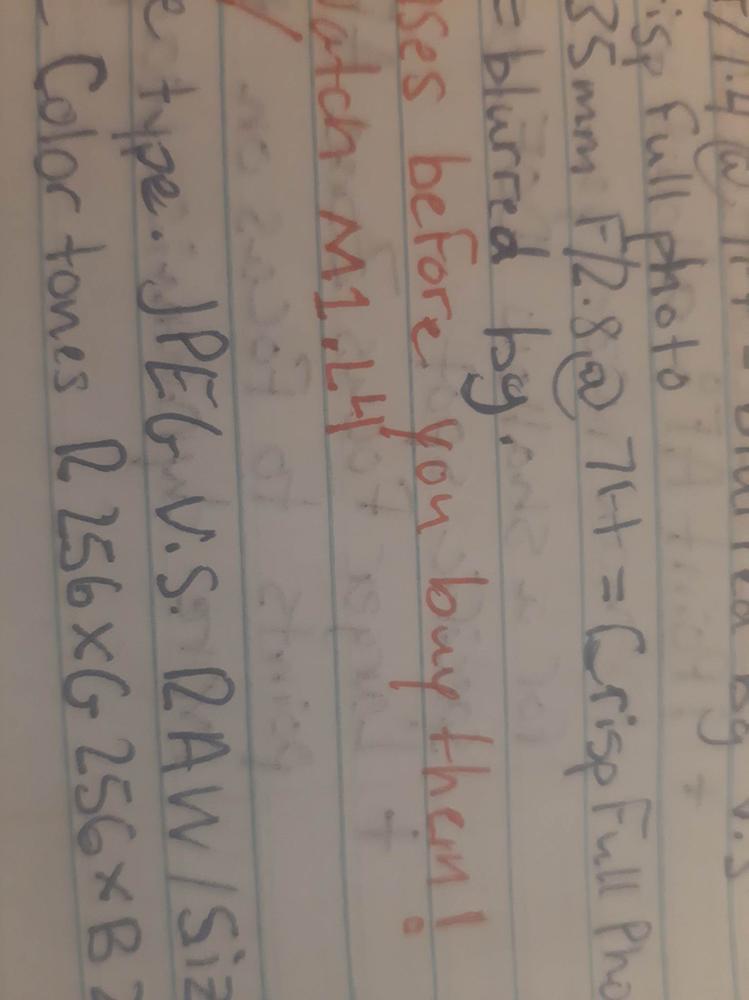 F/1.4 @ 7H = blurred bg v.s
isp full photo
35mm F/2.8 @ 7H = Crisp Full Pho
= blurred bg.
ses before you buy them!
atch M1.L4
e type. JPEG V.S. RAW / Siz
- Color tones R 256 x G 256 x B 2